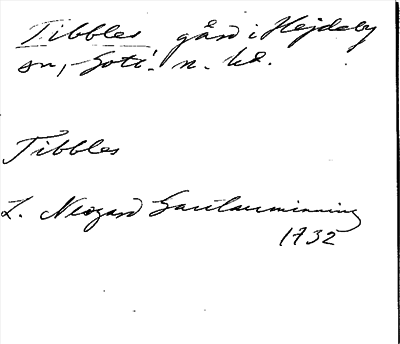 Tibbles gård i Hejdeby
sn, Gotl. n. hd.
Tibbles
L. Neogard Gautauminning
1732